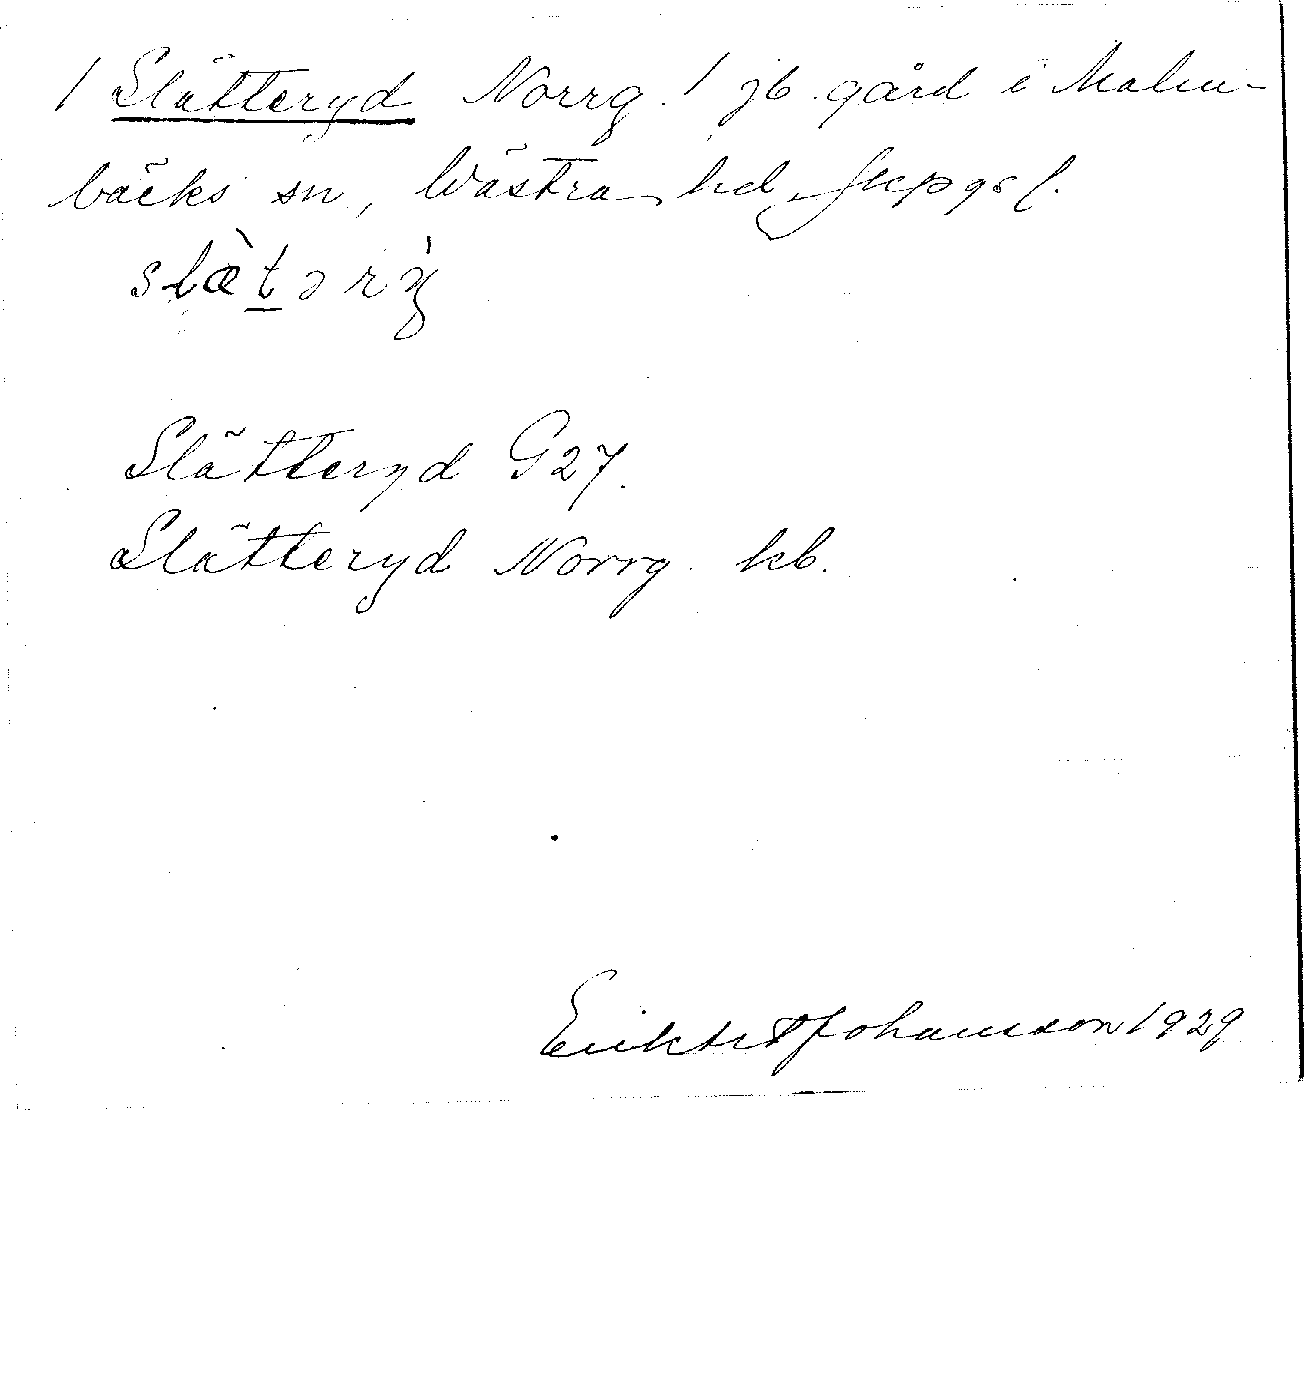 / Slätteryd Norrg. / jb. gård i Malm-
bäcks sn, Västra hd, Jkpgs l.
slæ̀tərý
Slätteryd G 27.
Slätteryd Norrg. kb.
Johansson 1929